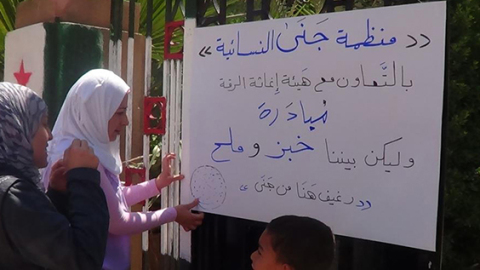 « منظمة جَنَىٰ النسائية »
بالتَّعاون مع هَيئة إنمائة الرقة
مُبادَرة
وليكن بيننا خبز و ملح
« رغيف هَنَا من جَنَى »